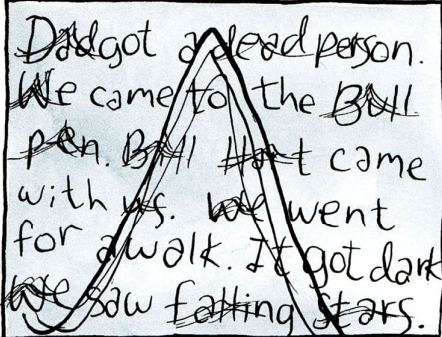 Dad got a dead person.
We came to the Bull
pen. Ball Hart came
with us. We went
for a walk. It got dark
We saw falling stars.